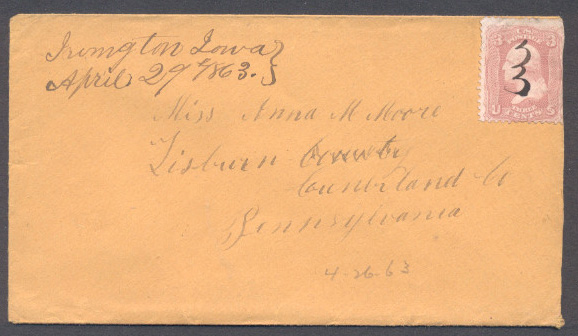 Irvington Iowa }
April 29th 1863. }
3 3
U S
Miss Anna M Moore
Lisburn County
Cumberland Co
Pennsylvania
4-26-63